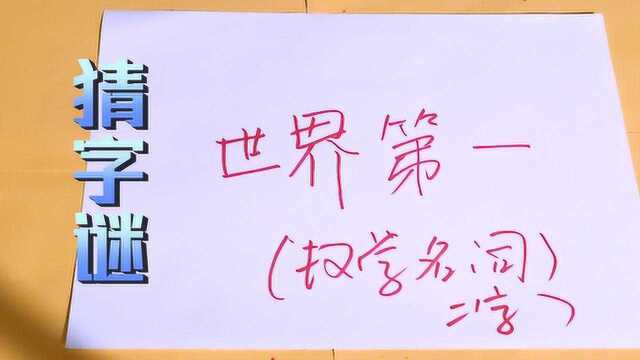 猜字谜
世界第一
(数学名词)
二字